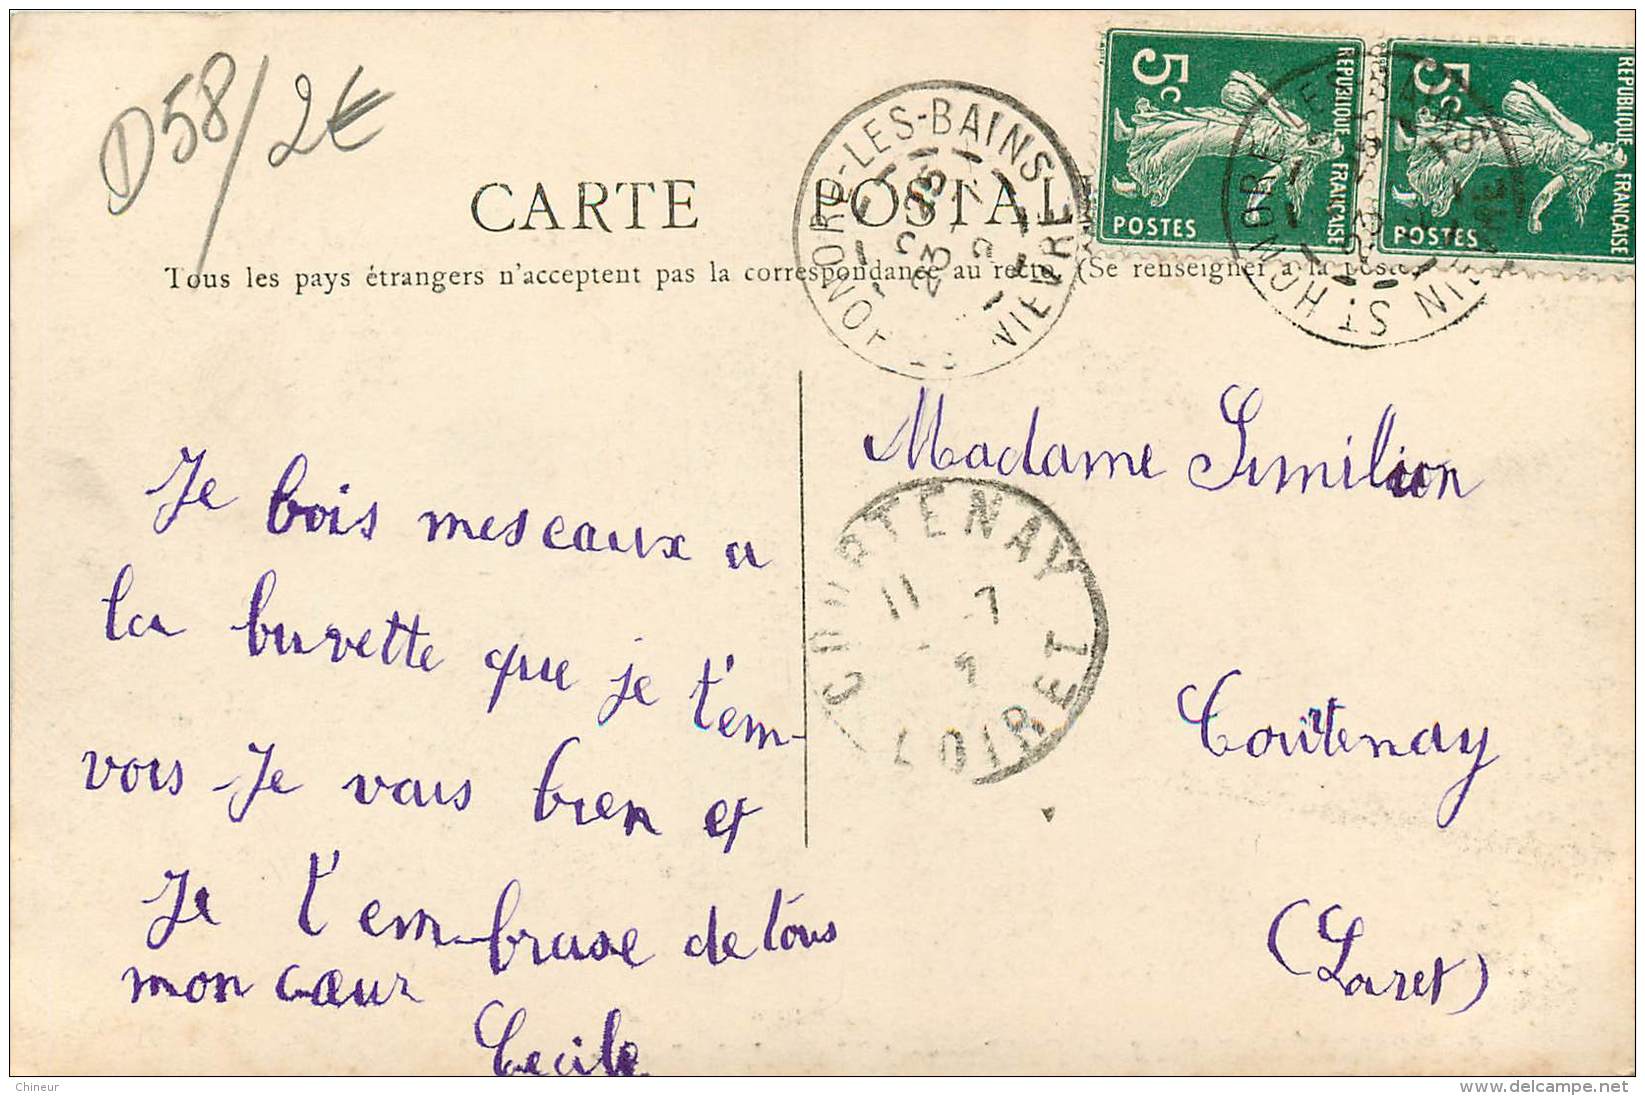 D58/2€
CARTE POSTAL
Tous les pays étrangers n'acceptent pas la correspondance au recto. (Se renseigner à la
ONORE-LES-BAINS
NIEVRE
23
5 c REPUBLIQUE FRANÇAISE POSTES
5 c REPUBLIQUE FRANÇAISE POSTES
ST HONORE LES BAINS
Madame Similion
Courtenay
(Loiret)
COURTENAY
11 7
LOIRET
Je bois mes eaux a
la buvette que je t'em-
vois - Je vais bien et
Je t'em-brase de tous
mon cœur
Cecile
Chineur
www.delcampe.net